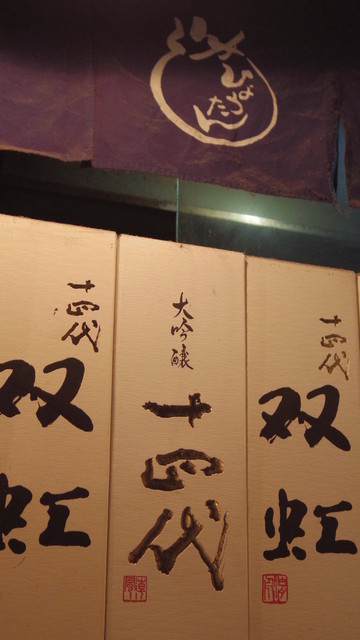 ひょうたん
十四代
双虹
大吟醸
十四代
十四代
双虹